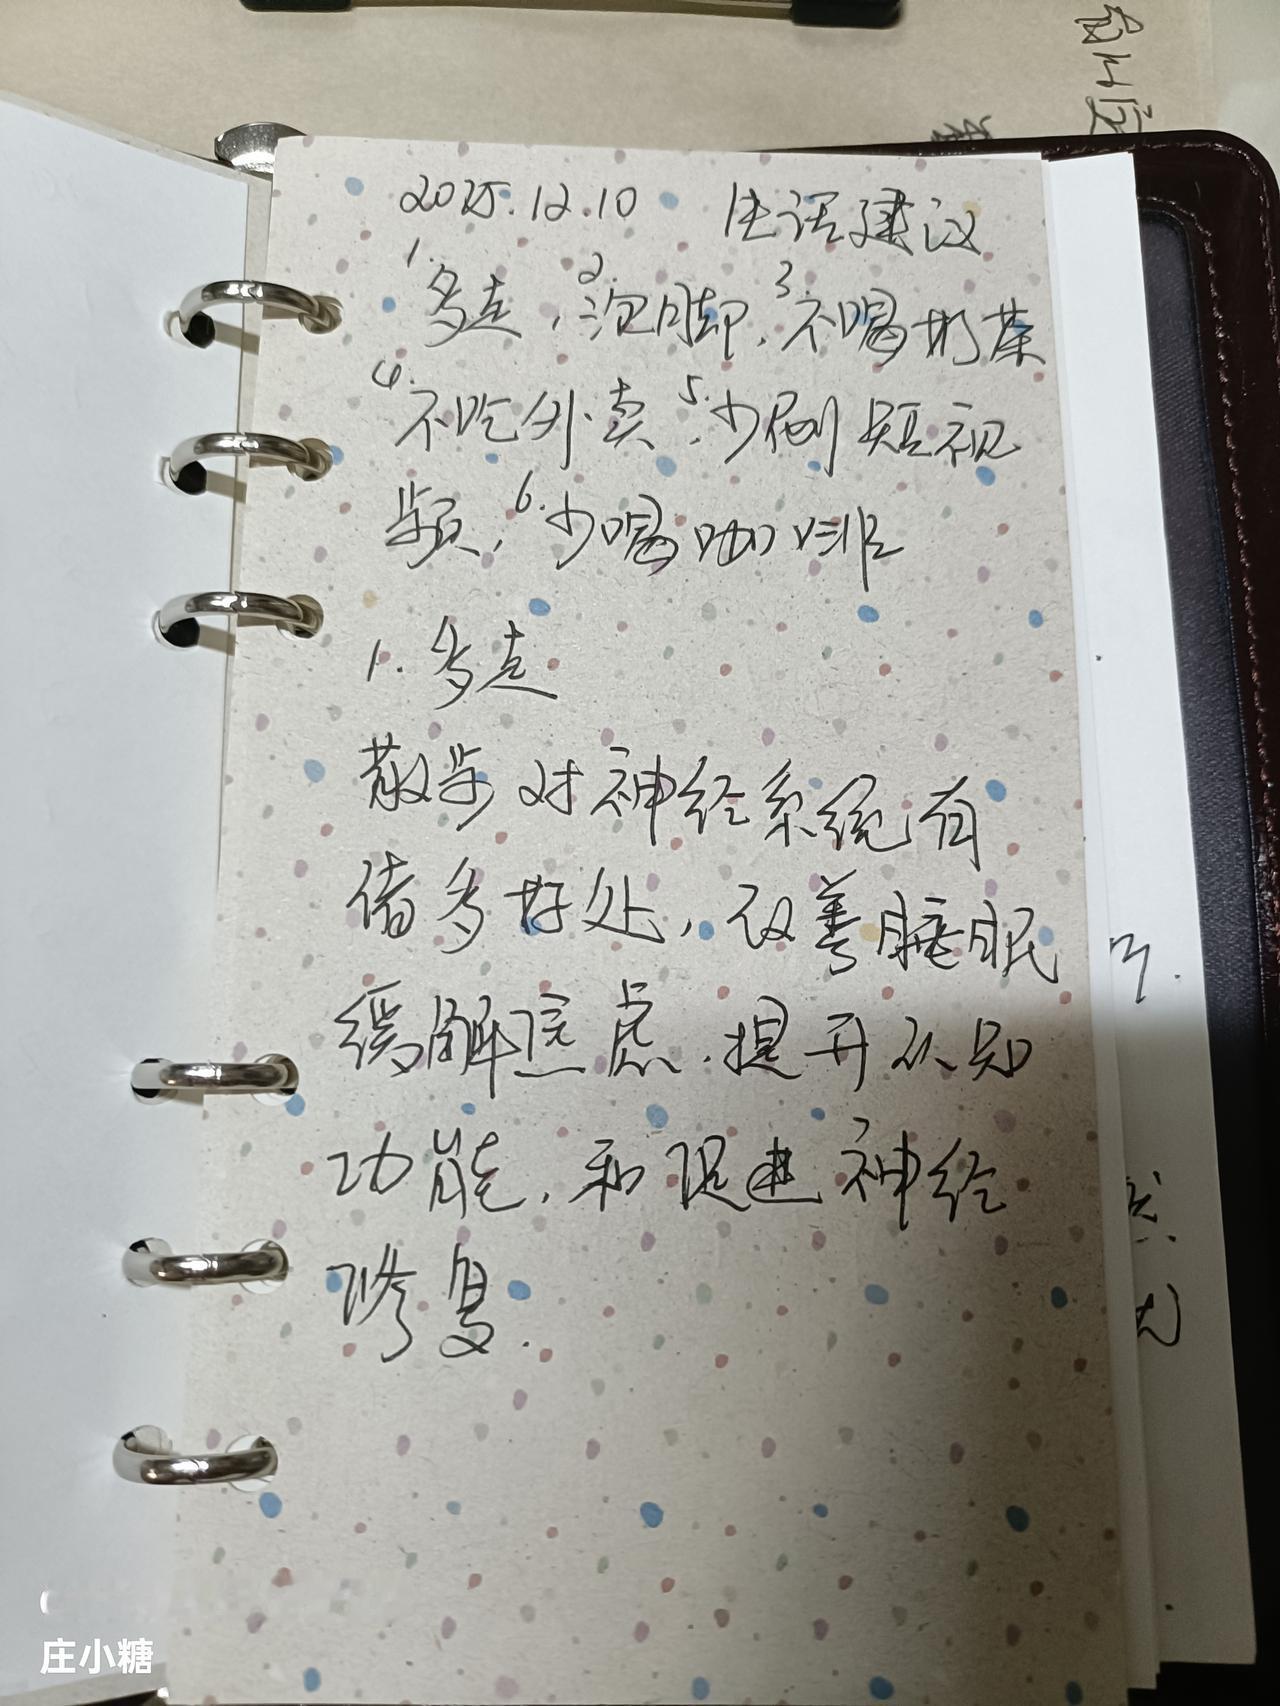 2025.12.10 生活建议
1.多走,2.泡脚,3.不喝奶茶
4.不吃外卖,5.少刷短视
频,6.少喝咖啡
1.多走
散步对神经系统有
诸多好处,改善睡眠
缓解焦虑.提升认知
功能,和促进神经
修复.
庄小糖